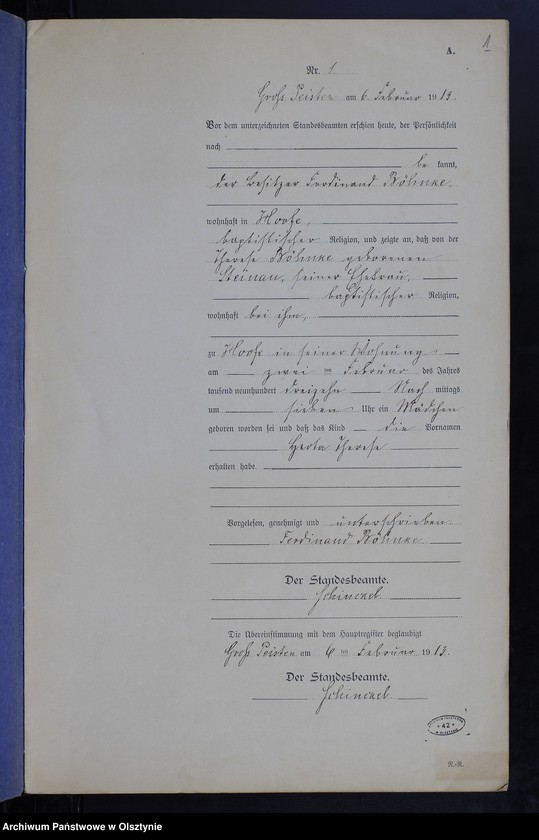 A.
1
Nr. 1
Groß Peisten am 6. Februar 1913.
Vor dem unterzeichneten Standesbeamten erschien heute, der Persönlichkeit
nach
be kannt,
der Besitzer Ferdinand Böhnke,
wohnhaft in Hoofe,
baptistischer Religion, und zeigte an, daß von der
Therese Böhnke geborenen
Steinau, seiner Ehefrau,
baptistischer Religion,
wohnhaft bei ihm,
zu Hoofe in seiner Wohnung
am zwei ten Februar des Jahres
tausend neunhundert dreizehn Nach mittags
um sieben Uhr ein Mädchen
geboren worden sei und daß das Kind die Vornamen
Herta Therese
erhalten habe.
Vorgelesen, genehmigt und unterschrieben
Ferdinand Böhnke
Der Standesbeamte.
Schinckel
Die Übereinstimmung mit dem Hauptregister beglaubigt
Groß Peisten am 6 ten Februar 1913.
Der Standesbeamte.
Schinckel
* 42 *
R.-R.
Archiwum Państwowe w Olsztynie